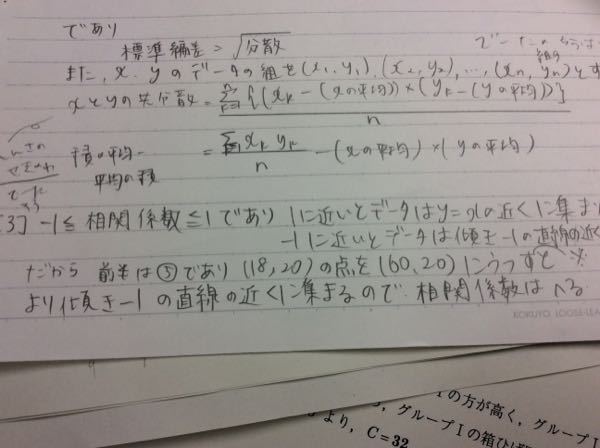 であり
標準編差 = √分散
データの
また, x, yのデータの組を (x₁, y₁), (x₂, y₂), …, (xn, yn) とす
xとyの共分散 = Σ{(xk − (xの平均)) × (yk − (yの平均))} / n
積の平均 − 平均の積 = Σ xk yk / n − (xの平均) × (yの平均)
[3] −1 ≦ 相関係数 ≦ 1 であり 1に近いとデータは y = x の近くに集ま
−1に近いとデータは傾き−1の直線の近く
だから 前半は⑤であり (18, 20) の点を (60, 20) にうつすと ※
より傾き−1の直線の近くに集まるので. 相関係数はへる
KOKUYO LOOSE-LEA
Iの方が高く, グループI
, グループIの箱ひげ
より, C = 32